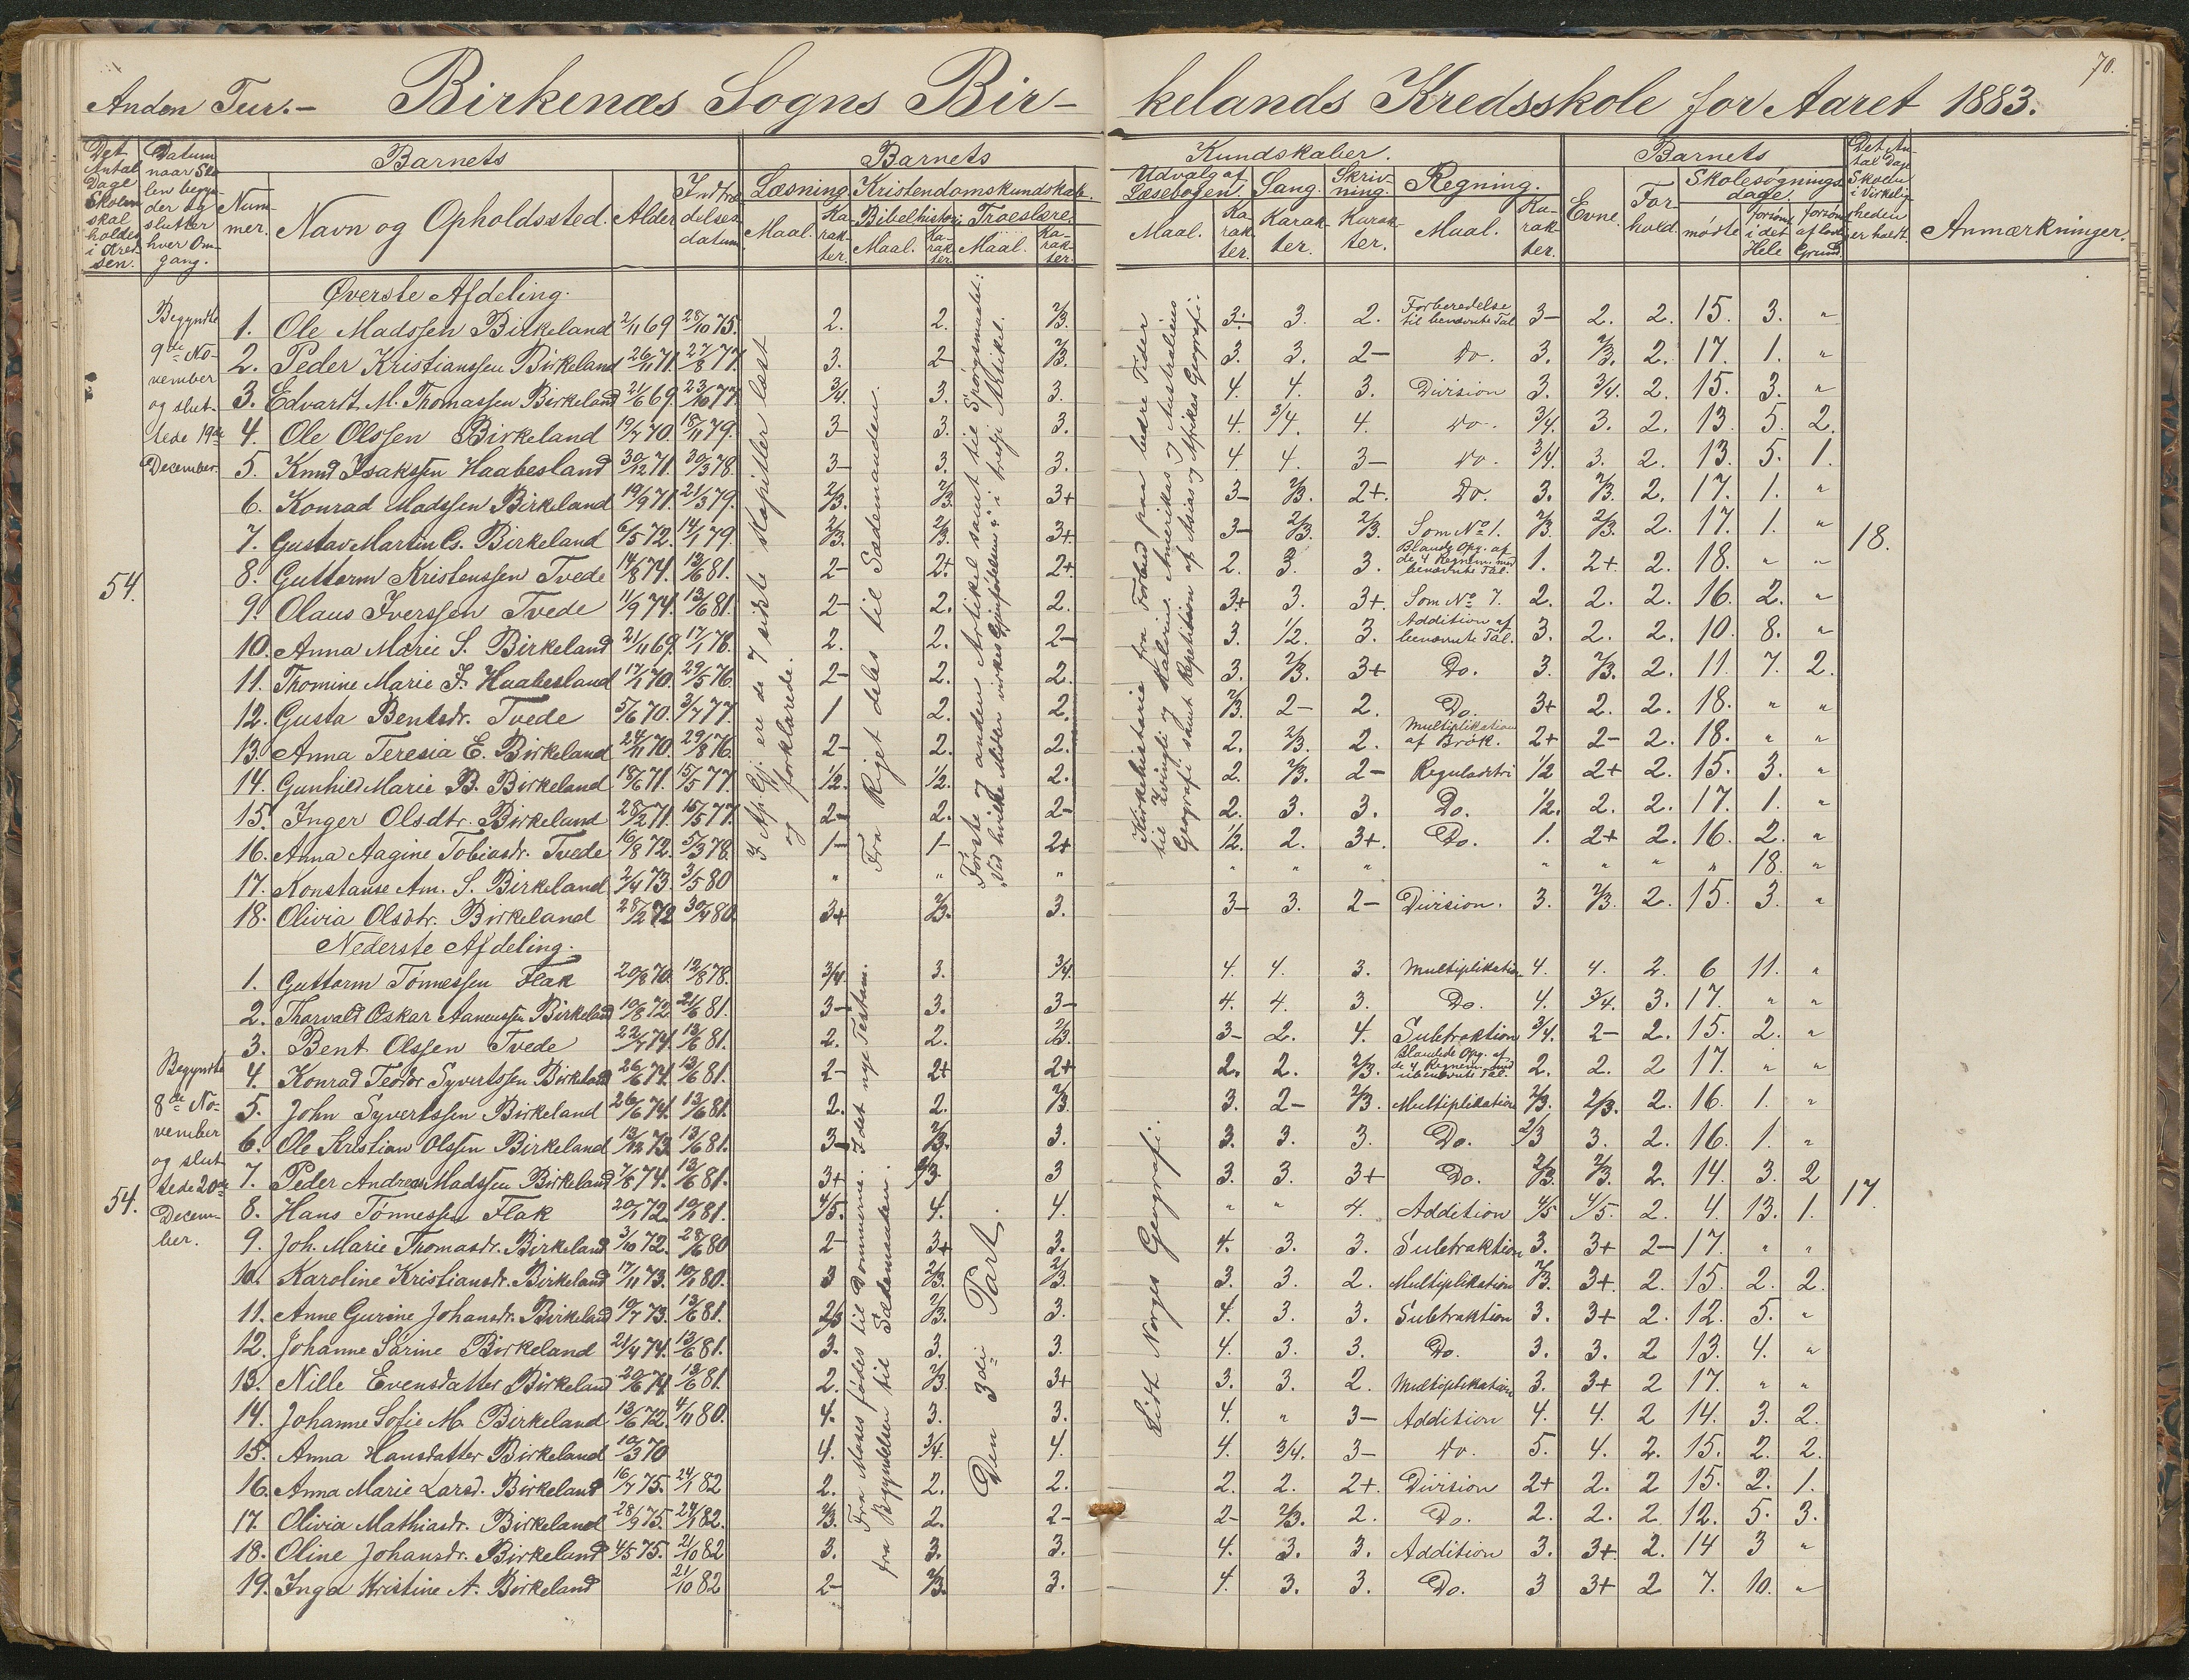 70.
Anden Tur.- Birkenæs Sogns Bir- kelands Kredsskole for Aaret 1883.
Det Antal Dage Skolen skal holdes i Kredsen.
Datum naar Skolen begynder og slutter hver Omgang.
Barnets
Nummer.
Navn og Opholdssted.
Alder
Indtrædelsesdatum
Barnets Kundskaber.
Læsning. Maal. Karakter.
Kristendomskundskab.
Bibelhistori Maal. Karakter.
Troeslære Maal. Karakter.
Udvalg af Læsebogen. Maal. Karakter.
Sang. Karakter.
Skrivning. Karakter.
Regning. Maal. Karakter.
Barnets
Evne.
Forhold.
Skolesøgningsdage.
mødte
forsømt i det Hele
forsømt af lovl. Grund.
Det Antal Dage Skolen i Virkeligheden er holdt.
Anmærkninger.
Øverste Afdeling.
Begyndte 9de November og sluttede 19de December.
54.
18.
1. Ole Madssen Birkeland 2/11 69 28/10 75. 2. 2. 2/3. 3- 3. 2. Forberedelse til benævnte Tal 3- 2. 2. 15. 3. "
2. Peder Kristianssen Birkeland 26/11 71. 27/8 77. 3. 2- 2/3. 3. 3. 2- Do. 3. 2/3. 2. 17. 1. "
3. Edvardt M. Thomassen Birkeland 21/6 69. 23/10 77. 3/4. 3. 3. 4. 4. 3. Division 3. 3/4. 2. 15. 3. "
4. Ole Olssen Birkeland 19/7 70. 18/11 79. 3- 3. 3. 4. 3/4. 4. Do. 3/4. 3. 2. 13. 5. 2.
5. Knud Isakssen Haabesland 30/12 71. 30/3 78. 3- 3. 3. 4. 4. 3- Do. 3/4. 3. 2. 13. 5. 1.
6. Konrad Madssen Birkeland 19/9 71. 21/3 79. 2/3. 2/3. 3+ 3- 2/3. 2+. Do. 3. 2/3. 2. 17. 1. "
7. Gustav Martin Cs. Birkeland 6/5 72. 14/1 79. 2/3. 2/3. 3+ 3- 2/3. 2/3. Som No 1. 2/3. 2/3. 2. 17. 1. "
8. Guttorm Kristenssen Tvede 14/8 74. 13/6 81. 2- 2+ 2+ 2. 3. 3. Bland. Opg. af de 4 Regnem. med benævnte Tal. 1. 2+ 2. 18. " "
9. Olaus Iverssen Tvede 11/9 74. 13/6 81. 2- 2. 2. 3+ 3. 3+. Som No 7. 2. 2. 2. 16. 2. "
10. Anna Marie S. Birkeland 21/11 69. 17/1 78. 2. 2. 2- 3. 1/2. 3. Addition af benævnte Tal. 3. 2. 2. 10. 8. "
11. Thomine Marie J. Haabesland 17/1 70. 29/5 76. 2- 2. 2. 3. 2/3. 3+ Do. 3. 2/3. 2. 11. 7. 2.
12. Gusta Bentsdr. Tvede 5/6 70. 3/7 77. 1 2. 2. 2/3. 2- 2. Do. 3+ 2. 2. 18. " "
13. Anna Teresia E. Birkeland 24/11 70. 29/8 76. 2- 2. 2. 2. 2/3. 2. Multiplikation af Brøk. 2+ 2- 2. 18. " "
14. Gunhild Marie B. Birkeland 18/6 71. 15/5 77. 1/2. 1/2. 2. 2. 2/3. 2- Reguladetri 1/2 2+ 2. 15. 3. "
15. Inger Olsdtr. Birkeland 28/2 71. 15/5 77. 2- 2. 2- 2. 3. 3. Do. 1/2. 2. 2. 17. 1. "
16. Anna Aagine Tobiasdr. Tvede 16/8 72. 5/3 78. 1- 1- 2+ 1/2. 2. 3+. Do. 1. 2+ 2. 16. 2. "
17. Konstanse Am. S. Birkeland 2/4 73. 3/5 80 " " " " " " " " " " 18. "
18. Olivia Olsdtr. Birkeland 28/2 72 30/4 80. 3+ 2/3. 3. 3- 3. 2- Division. 3. 2/3. 2. 15. 3. "
I Ap. Gj. ere de 7 sidste Kapitler læst og forklarede.
Fra Riget deles til Sædemanden.
Første og anden Artikel samt til Spørgsmaalet: "Ved hvilke Midler virkes Gjenfødelsen" i tredje Artikel.
Kirkehistorie fra Forbud paa bedre Tider til Zvingli og Kalvin. Amerikas og Australiens Geografi samt Repetition af Asias og Afrikas Geografi.
Nederste Afdeling.
Begyndte 8de November og sluttede 20de December.
54.
17.
1. Guttorm Tønnessen Flak 20/8 70. 12/8 78. 3/4. 3. 3/4. 4. 4. 3. Multiplikation 4. 4. 2. 6 11. "
2. Thorvald Oskar Aanenssen Birkeland 10/8 72. 21/6 81. 3- 3. 3- 4. 4. 3. Do. 4. 3/4. 3. 17. " "
3. Bent Olssen Tvede 22/7 74. 13/6 81. 2. 2. 2/3. 3- 2. 4. Subtraktion 3/4. 2- 2. 15. 2. "
4. Konrad Teodor Syvertssen Birkeland 26/6 74. 13/6 81. 2- 2+ 2+ 2. 2. 2/3. Blandede Opg. af de 4 Regnem. med ubenævnte Tal. 2. 2. 2 17. " "
5. John Syvertssen Birkeland 26/6 74. 13/6 81. 2. 2. 2/3. 3. 2- 2/3. Multiplikation 2/3. 2/3. 2. 16. 1. "
6. Ole Kristian Olssen Birkeland 13/12 73. 13/6 81. 3- 2/3. 3. 3. 3. 3. Do. 2/3 3. 2. 16. 1. "
7. Peder Andreas Madssen Birkeland 7/8 74. 13/6 81. 3+ 2/3. 3 3. 3. 3+ Do. 2/3. 2/3. 2. 14. 3. 2
8. Hans Tønnessen Flak 20/1 72. 10/1 81. 4/5. 4. 4. " " 4. Addition 4/5 4/5. 2. 4. 13. 1.
9. Joh. Marie Thomasdr. Birkeland 3/10 72. 28/6 80 2- 3+ 3. 4. 3. 3. Subtraktion 3. 3+ 2- 17. " "
10. Karoline Kristiansdr. Birkeland 17/11 73. 10/1 80. 3 2/3. 2/3. 3. 3. 2. Multiplikation 2/3. 3+. 2. 15. 2. 2.
11. Anne Gurine Johansdr. Birkeland 10/7 73. 13/6 81. 2/3 2/3. 3. 4. 3. 3. Subtraktion 3. 3+ 2. 12. 5. "
12. Johanne Sarine Birkeland 21/4 74. 13/6 81. 3. 3. 3. 4. 3. 3. Do. 3. 3. 2 13. 4. "
13. Nille Evensdatter Birkeland 20/6 74. 13/6 81. 2. 2/3. 3+ 3. 3. 2. Multiplikation 3. 3+ 2 17. " "
14. Johanne Sofie M. Birkeland 13/6 72. 4/11 80. 4. 3. 3. 4. " 3- Addition 4. 4. 2 14. 3. 2.
15. Anna Hansdatter Birkeland 10/3 70 4. 3/4. 4. 4. 3/4. 3- Do. 5. 4. 2. 15. 2. 2.
16. Anna Marie Larsd. Birkeland 16/7 75. 24/1 82 2. 2. 2. 2. 2. 2+. Division 2+ 2. 2 15. 2. 1.
17. Olivia Mathiasdr. Birkeland 28/9 75. 24/1 82. 2/3. 2. 2- 2- 2/3. 2. Do. 2. 2. 2. 12. 5. 3.
18. Oline Johansdr. Birkeland 4/5 75. 21/10 82 3. 3. 3. 4. 3. 3. Addition 3. 3+ 2. 14 3 "
19. Inga Kristine A. Birkeland 21/10 82 2- 2/3. 3. 4. 3. 3. Do. 3 3+ 2 7. 10. "
Fra Moses fødes til Dommerne. I det nye Testam. fra Begyndelsen til Sædemanden.
Den 3die Part.
Lidt Norges Geografi.